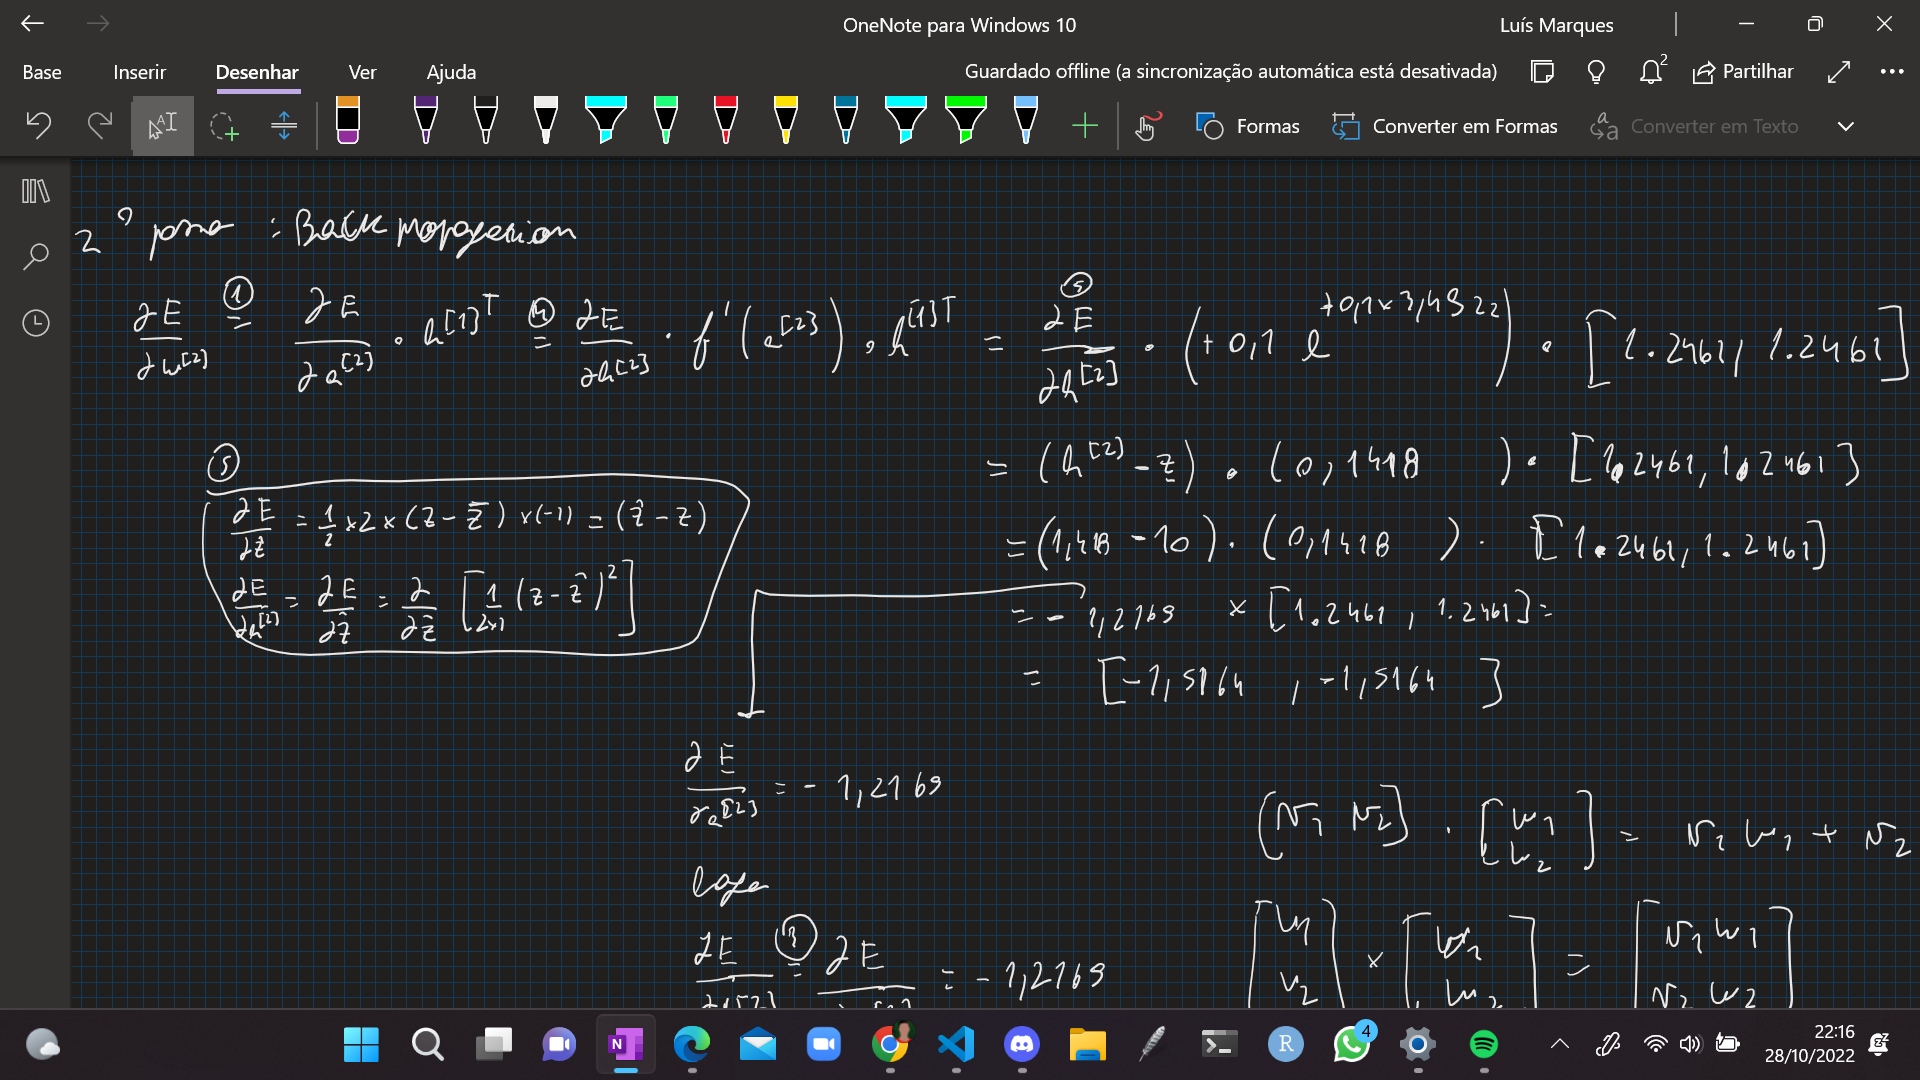 OneNote para Windows 10
Luís Marques
Base Inserir Desenhar Ver Ajuda
Guardado offline (a sincronização automática está desativada)
2
Partilhar
Formas
Converter em Formas
Converter em Texto
2º passo : Back propagation
∂E/∂w^[2] =① ∂E/∂a^[2] · h^[1]T =④ ∂E/∂h^[2] · f'(a^[2]) · h^[1]T = ∂E/∂h^[2] · (+0,1 e^(+0,1×3,4922)) · [1.2461, 1.2461]
= (h^[2] - z) · (0,1418) · [1.2461, 1.2461]
⑤
∂E/∂ẑ = 1/2 × 2 × (z - ẑ) × (-1) = (ẑ - z)
= (1,418 - 10) · (0,1418) · [1.2461, 1.2461]
∂E/∂h^[2] = ∂E/∂ẑ = ∂/∂ẑ [1/2×1 (z - ẑ)^2]
= - 1,2169 × [1.2461, 1.2461] =
= [-1,5164, -1,5164]
∂E/∂a^[2] = - 1,2169
(v1 v2] · [w1 w2] = v1 w1 + v2
logo
∂E =③ ∂E = - 1,2169
[v1 v2] × [w1 w2] = [v1 w1 v2 w2]
4
22:16
28/10/2022